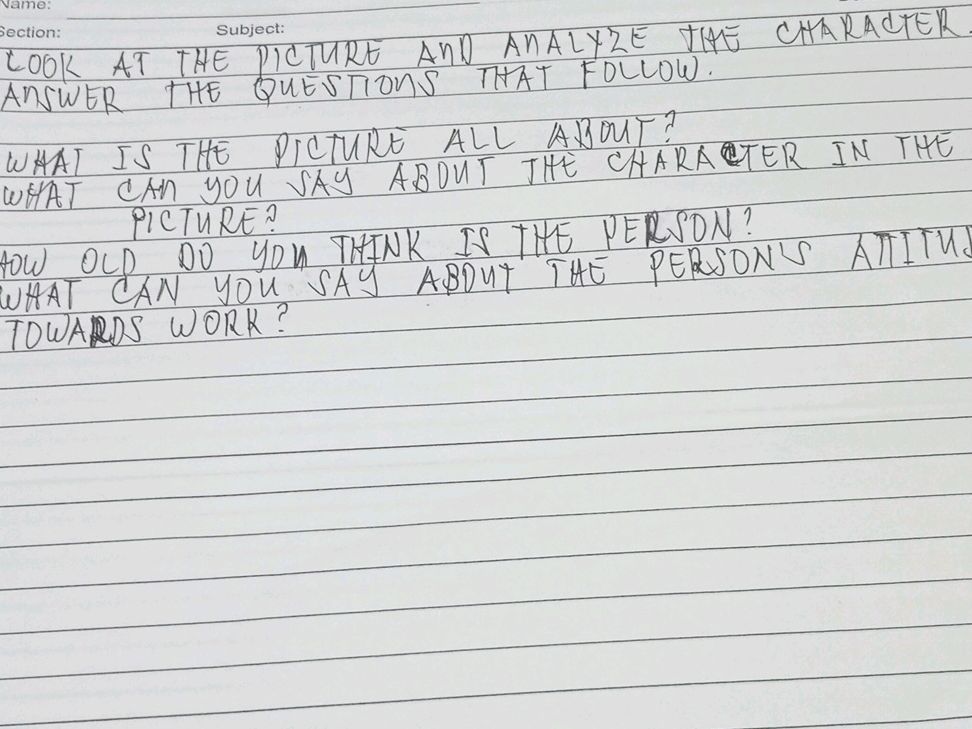 Name:
Section: Subject:
LOOK AT THE PICTURE AND ANALYZE THE CHARACTER.
ANSWER THE QUESTIONS THAT FOLLOW.
WHAT IS THE PICTURE ALL ABOUT?
WHAT CAN YOU SAY ABOUT THE CHARACTER IN THE
PICTURE?
HOW OLD DO YOU THINK IS THE PERSON?
WHAT CAN YOU SAY ABOUT THE PERSON'S ATTITUD
TOWARDS WORK?